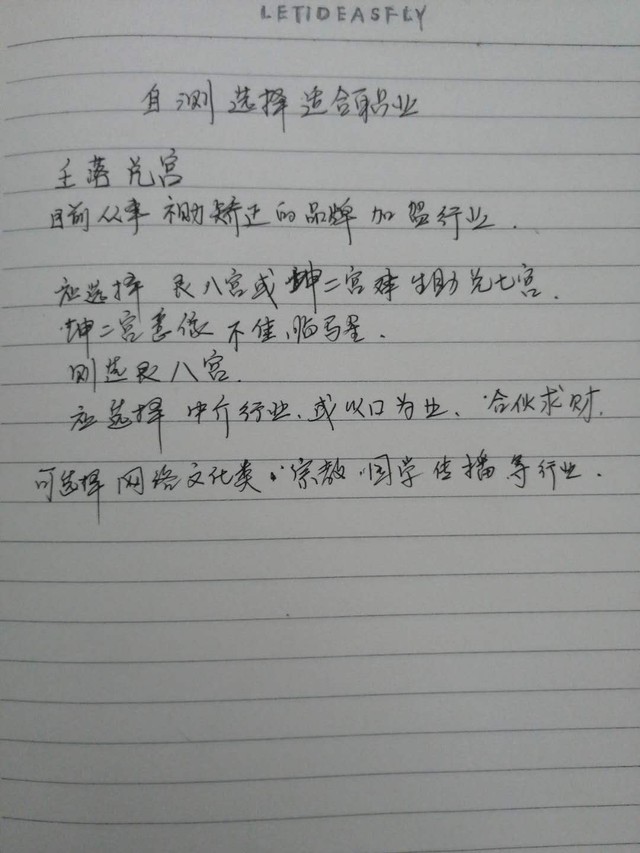 LETIDEASFLY
自测选择适合职业
壬落兑宫
目前从事视力矫正的品牌加盟行业.
应选择艮八宫或坤二宫来生助兑七宫.
坤二宫 不佳,临马星.
则选艮八宫.
应选择中介行业.或以口为业.合伙求财.
可选择网络文化类、宗教、国学传播等行业.